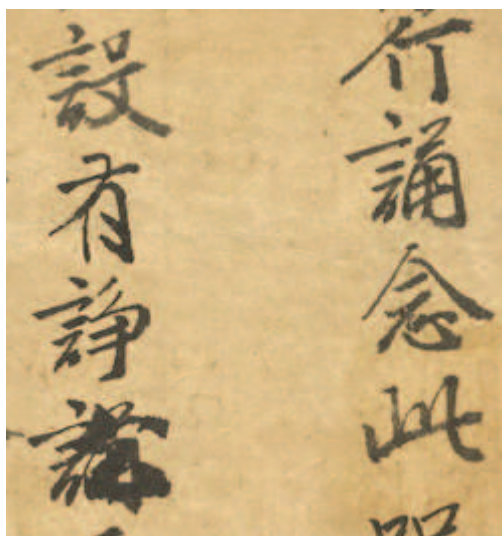 行誦念此
設有諍